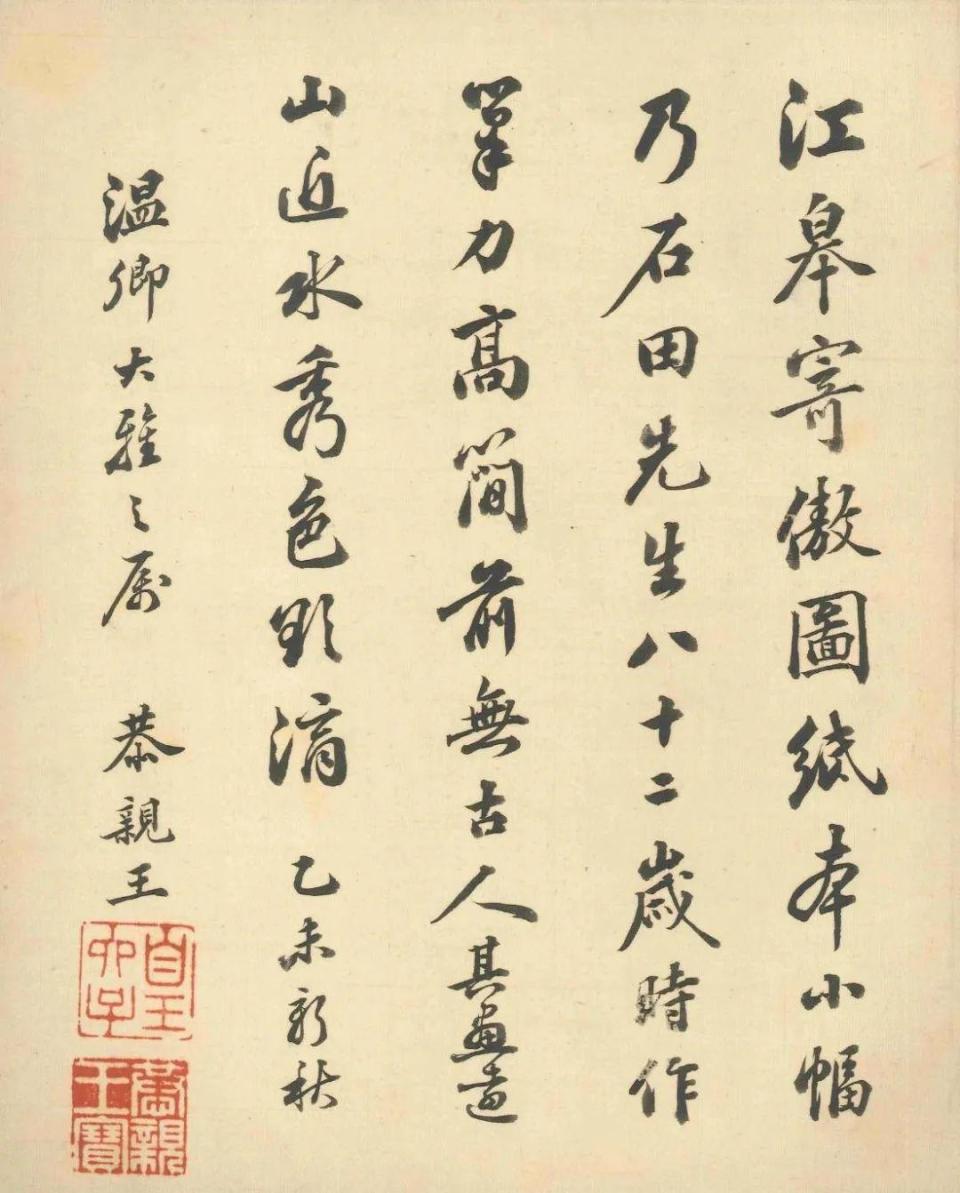 江皋寄傲圖紙本小幅
乃石田先生八十二歲時作
筆力髙簡前無古人其畫遠
山近水秀色欲滴 乙未新秋
温卿大雅之属 恭親王